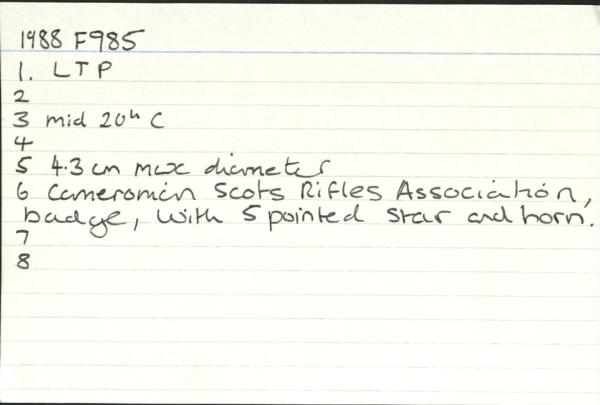 1988 F985
1. LTP
2
3 mid 20th C
4
5 4.3 cm max diameter
6 Cameronian Scots Rifles Association,
badge, with 5 pointed star and horn.
7
8